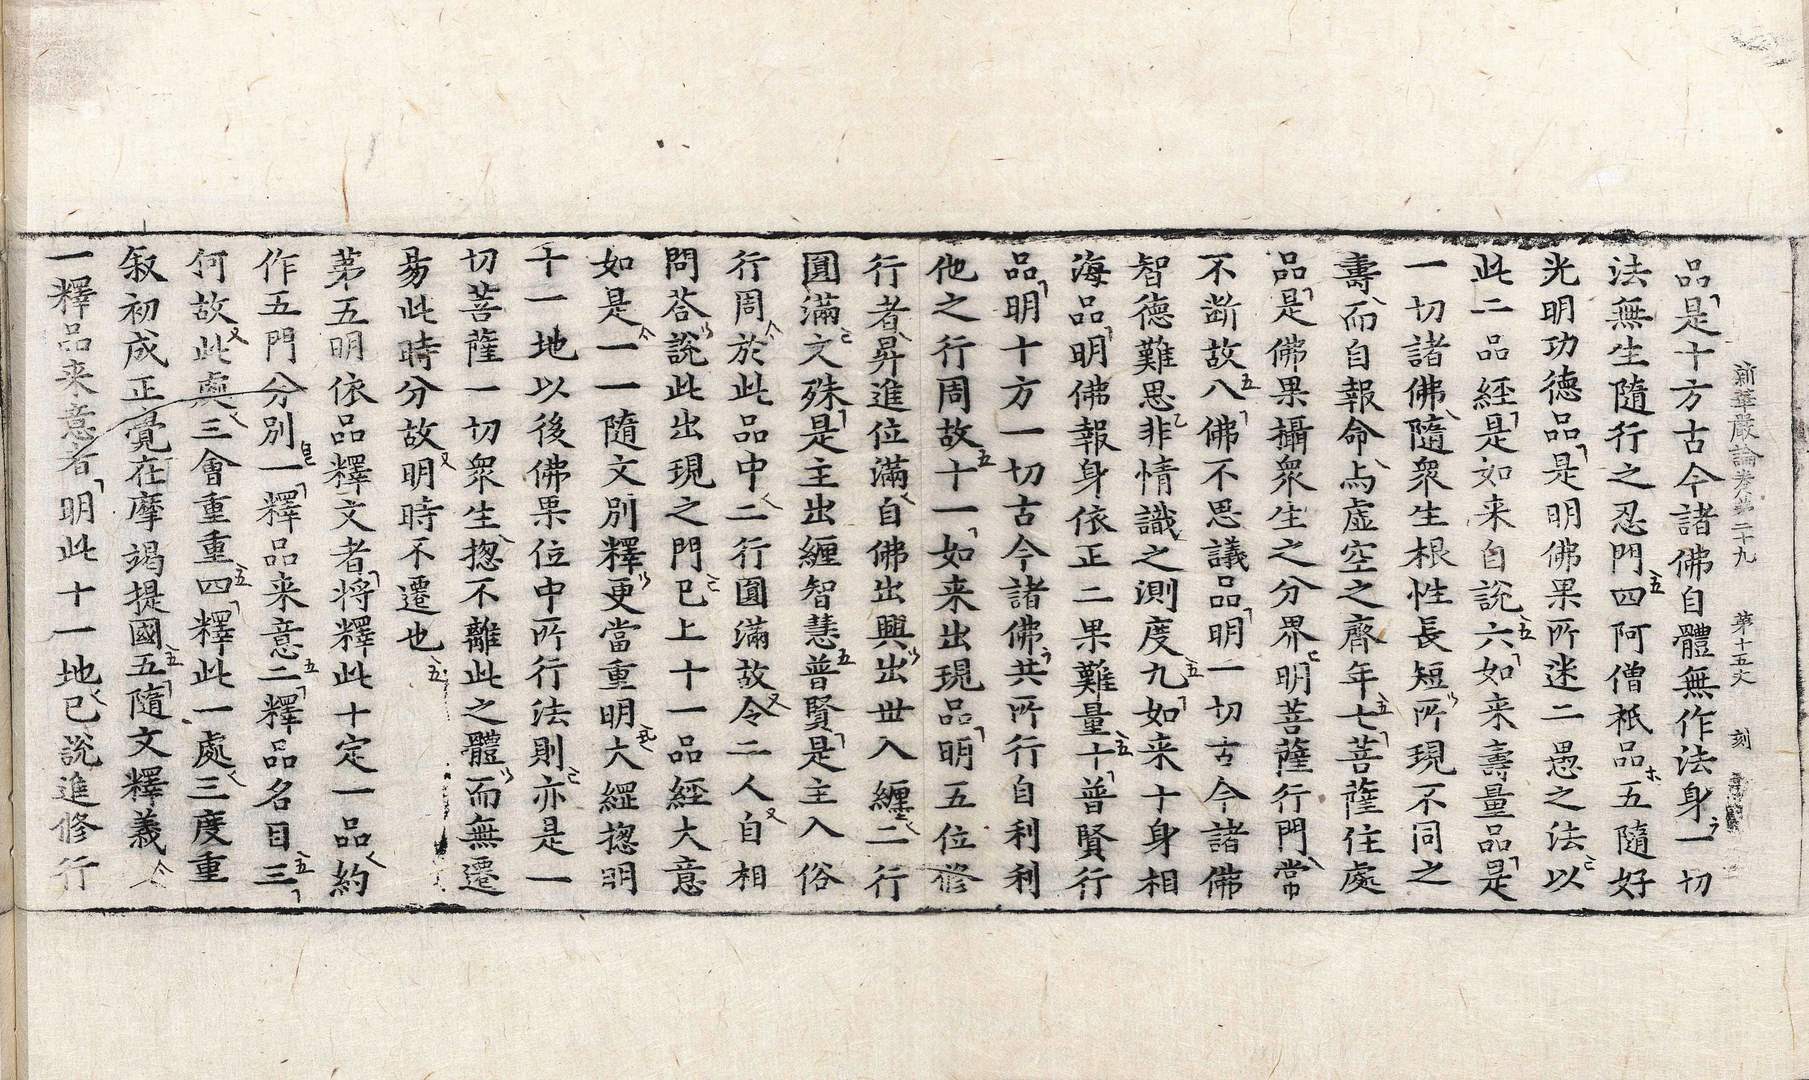 新華嚴論卷第二十九 第十五丈 刻
品是十方古今諸佛自體無作法身一切
法無生隨行之忍門四阿僧祇品五隨好
光明功德品是明佛果所迷二愚之法以
此二品經是如来自說六如来壽量品是
一切諸佛隨衆生根性長短所現不同之
壽而自報命与虛空之齊年七菩薩住處
品是佛果攝衆生之分界明菩薩行門常
不斷故八佛不思議品明一切古今諸佛
智德難思非情識之測度九如来十身相
海品明佛報身依正二果難量十普賢行
品明十方一切古今諸佛共所行自利利
他之行周故十一如来出現品明五位修
行者昇進位滿自佛出興出世入纏二行
圓滿文殊是主出纏智慧普賢是主入俗
行周於此品中二行圓滿故令二人自相
問荅說此出現之門已上十一品經大意
如是一一隨文別釋更當重明大經揔明
十一地以後佛果位中所行法則亦是一
切菩薩一切衆生揔不離此之體而無遷
昜此時分故明時不遷也
苐五明依品釋文者將釋此十定一品約
作五門分別一釋品来意二釋品名目三
何故此處三會重重四釋此一處三度重
叙初成正覺在摩竭提國五隨文釋義
一釋品来意者明此十一地已說進修行